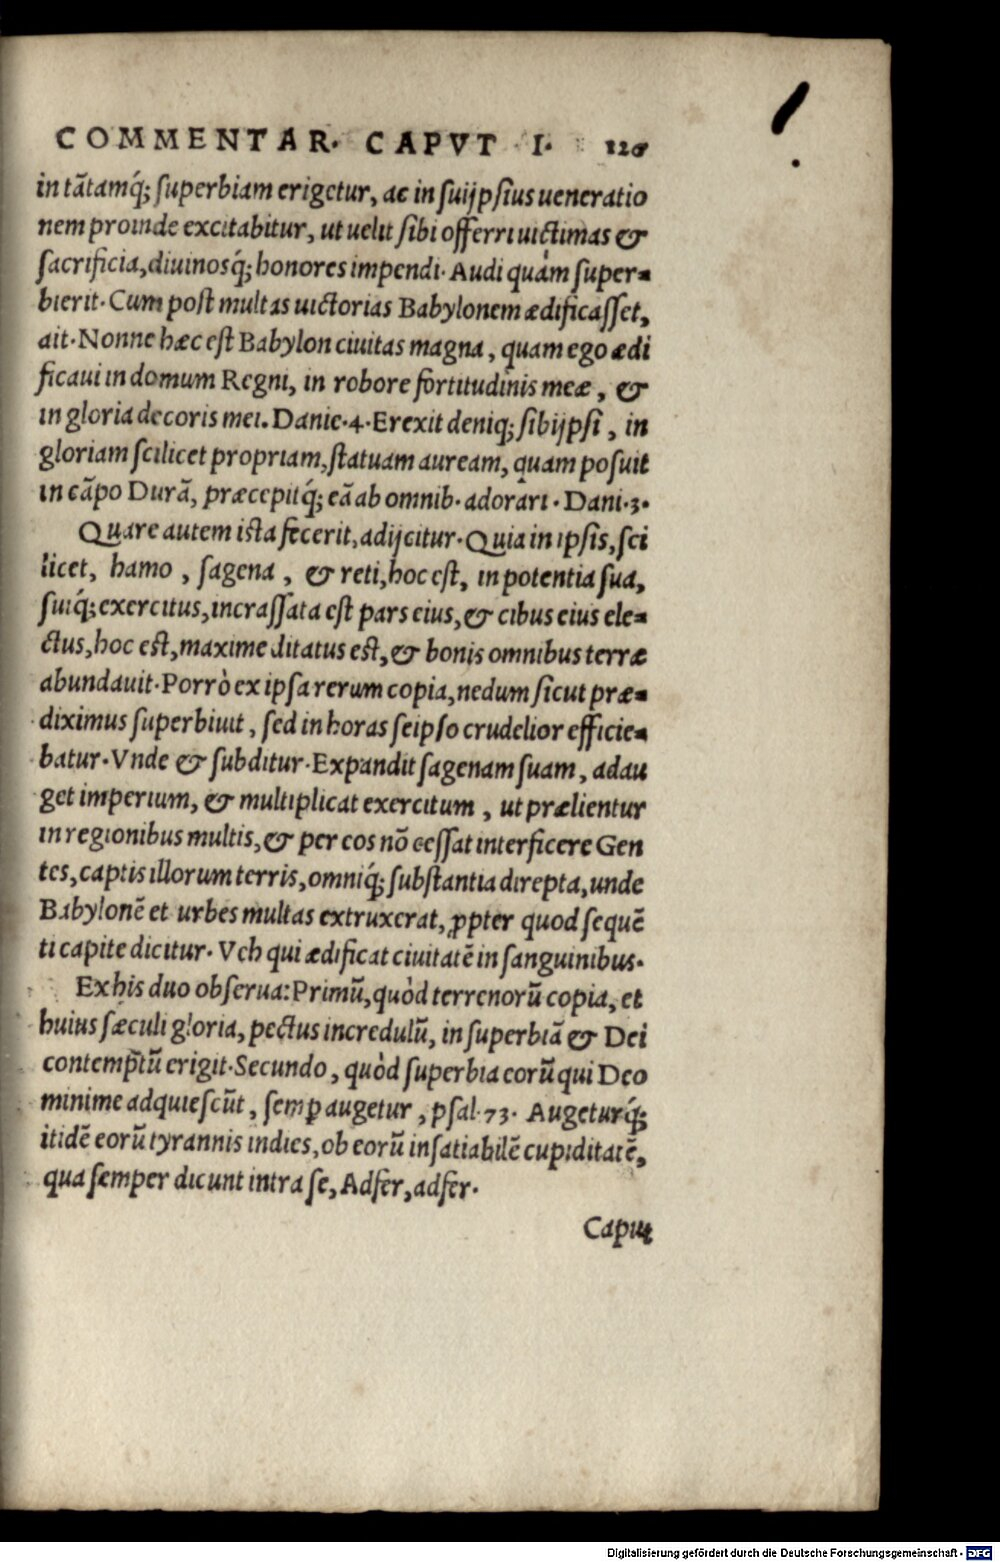 COMMENTAR. CAPVT I. 120
in tãtamq́; superbiam erigetur, ac in suijpsius ueneratio
nem proinde excitabitur, ut uelit sibi offerri uictimas &
sacrificia, diuinosq́; honores impendi. Audi quàm super-
bierit. Cum post multas uictorias Babylonem ædificasset,
ait. Nonne hæc est Babylon ciuitas magna, quam ego ædi
ficaui in domum Regni, in robore fortitudinis meæ, &
in gloria decoris mei. Danie. 4. Erexit deniq; sibijpsi, in
gloriam scilicet propriam, statuam auream, quam posuit
in cãpo Durã, præcepitq́; eã ab omnib. adorari. Dani. 3.
Quare autem ista fecerit, adijcitur. Quia in ipsis, sci
licet, hamo, sagena, & reti, hoc est, in potentia sua,
suiq́; exercitus, incrassata est pars eius, & cibus eius ele-
ctus, hoc est, maxime ditatus est, & bonis omnibus terræ
abundauit. Porrò ex ipsa rerum copia, nedum sicut præ-
diximus superbiuit, sed in horas seipso crudelior efficie-
batur. Vnde & subditur. Expandit sagenam suam, adau
get imperium, & multiplicat exercitum, ut prælientur
in regionibus multis, & per eos nõ cessat interficere Gen
tes, captis illorum terris, omniq́; substantia direpta, unde
Babylonẽ et urbes multas extruxerat, ꝓpter quod sequẽ
ti capite dicitur. Vęh qui ædificat ciuitatẽ in sanguinibus.
Ex his duo obserua: Primũ, quòd terrenorũ copia, et
huius sæculi gloria, pectus incredulũ, in superbiã & Dei
contemptũ erigit. Secundo, quòd superbia eorũ qui Deo
minime adquiescũt, semꝑ augetur, psal. 73. Augeturq́;
itidẽ eorũ tyrannis indies, ob eorũ insatiabilẽ cupiditatẽ,
qua semper dicunt intra se, Adfer, adfer.
Caput
Digitalisierung gefördert durch die Deutsche Forschungsgemeinschaft - DFG